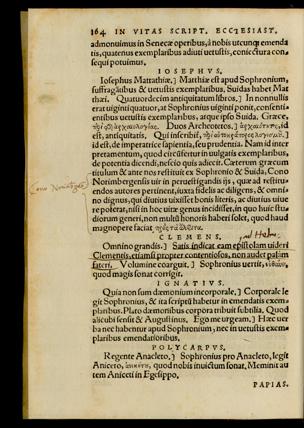 164 IN VITAS SCRIPT. ECCLESIAST.
admonuimus in Senecæ operibus, à nobis utcunq; emenda
tis, quatenus exemplaribus adiuti uetustis, coniectura con-
sequi potuimus.
IOSEPHVS.
Iosephus Matrathiæ.] Matthiæ est apud Sophronium,
suffragãtibus & uetustis exemplaribus, Suidas habet Mat
thæi. Quatuordecim antiquitatum libros.] In nonnullis
erat uiginti quatuor, at Sophronius uiginti ponit, consenti-
entibus uetustis exemplaribus, atque ipso Suida. Græce,
ἀρχαιολογίας. Duos Archeotetos.] ἀρχαιότητος, id
est, antiquitatis. Qui inscribit,
id est, de imperatrice sapientia, seu prudentia. Nam id inter
pretamentum, quod circũfertur in uulgatis exemplaribus,
de potentia dicendi, nescio quis adiecit. Cæterum græcum
titulum & ante nos restituit ex Sophronio & Suida, Cono
Norimbergensis uir in peruestigandis ijs, quæ ad restitu-
endos autores pertinent, iuxta fidelis ac diligens, & omni-
no dignus, qui diutius uixisset bonis literis, ac diutius uiue
re poterat, nisi in hoc uitæ genus incidisset, in quo huic stu
diorum generi, non multũ honoris haberi solet, quod haud
magnopere faciat
CLEMENS.
Omnino grandis.] Satis indicat eam epistolam uideri
Clementis, etiamsi propter contentiosos, non audet palàm
fateri. Volumine coarguit.] Sophronius uertit,
quod magis sonat corrigit.
IGNATIVS.
Quia non sum dæmonium incorporale.] Corporale le
git Sophronius, & ita scriptũ habetur in emendatis exem-
plaribus. Plato dæmonibus corpora tribuit subtilia. Quod
alicubi sensit & Augustinus. Ego me urgeam.] Hæc uer
ba nec habentur apud Sophronium, nec in uetustis exem-
plaribus emendatioribus.
POLYCARPVS.
Regente Anacleto.] Sophronius pro Anacleto, legit
Aniceto, ἀνικήτου, quod nobis inuictum sonat. Meminit au
tem Aniceti in Egesippo.
PAPIAS.